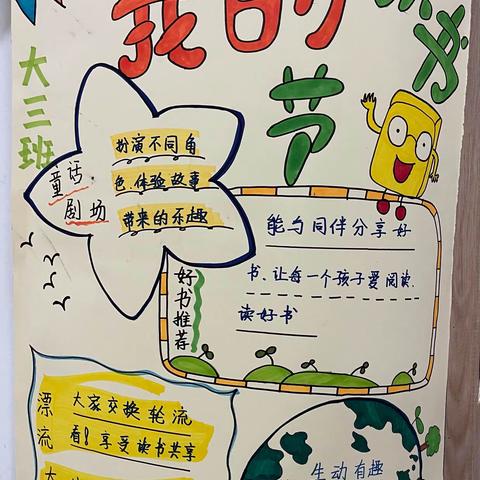 我的
读书
节
大三班
童话
剧场
扮演不同角
色、体验故事
带来的乐趣
好书推荐
能与同伴分享好
书、让每一个孩子爱阅读、
读好书
漂流
大家交换轮流
看!享受读书共享
生动有趣